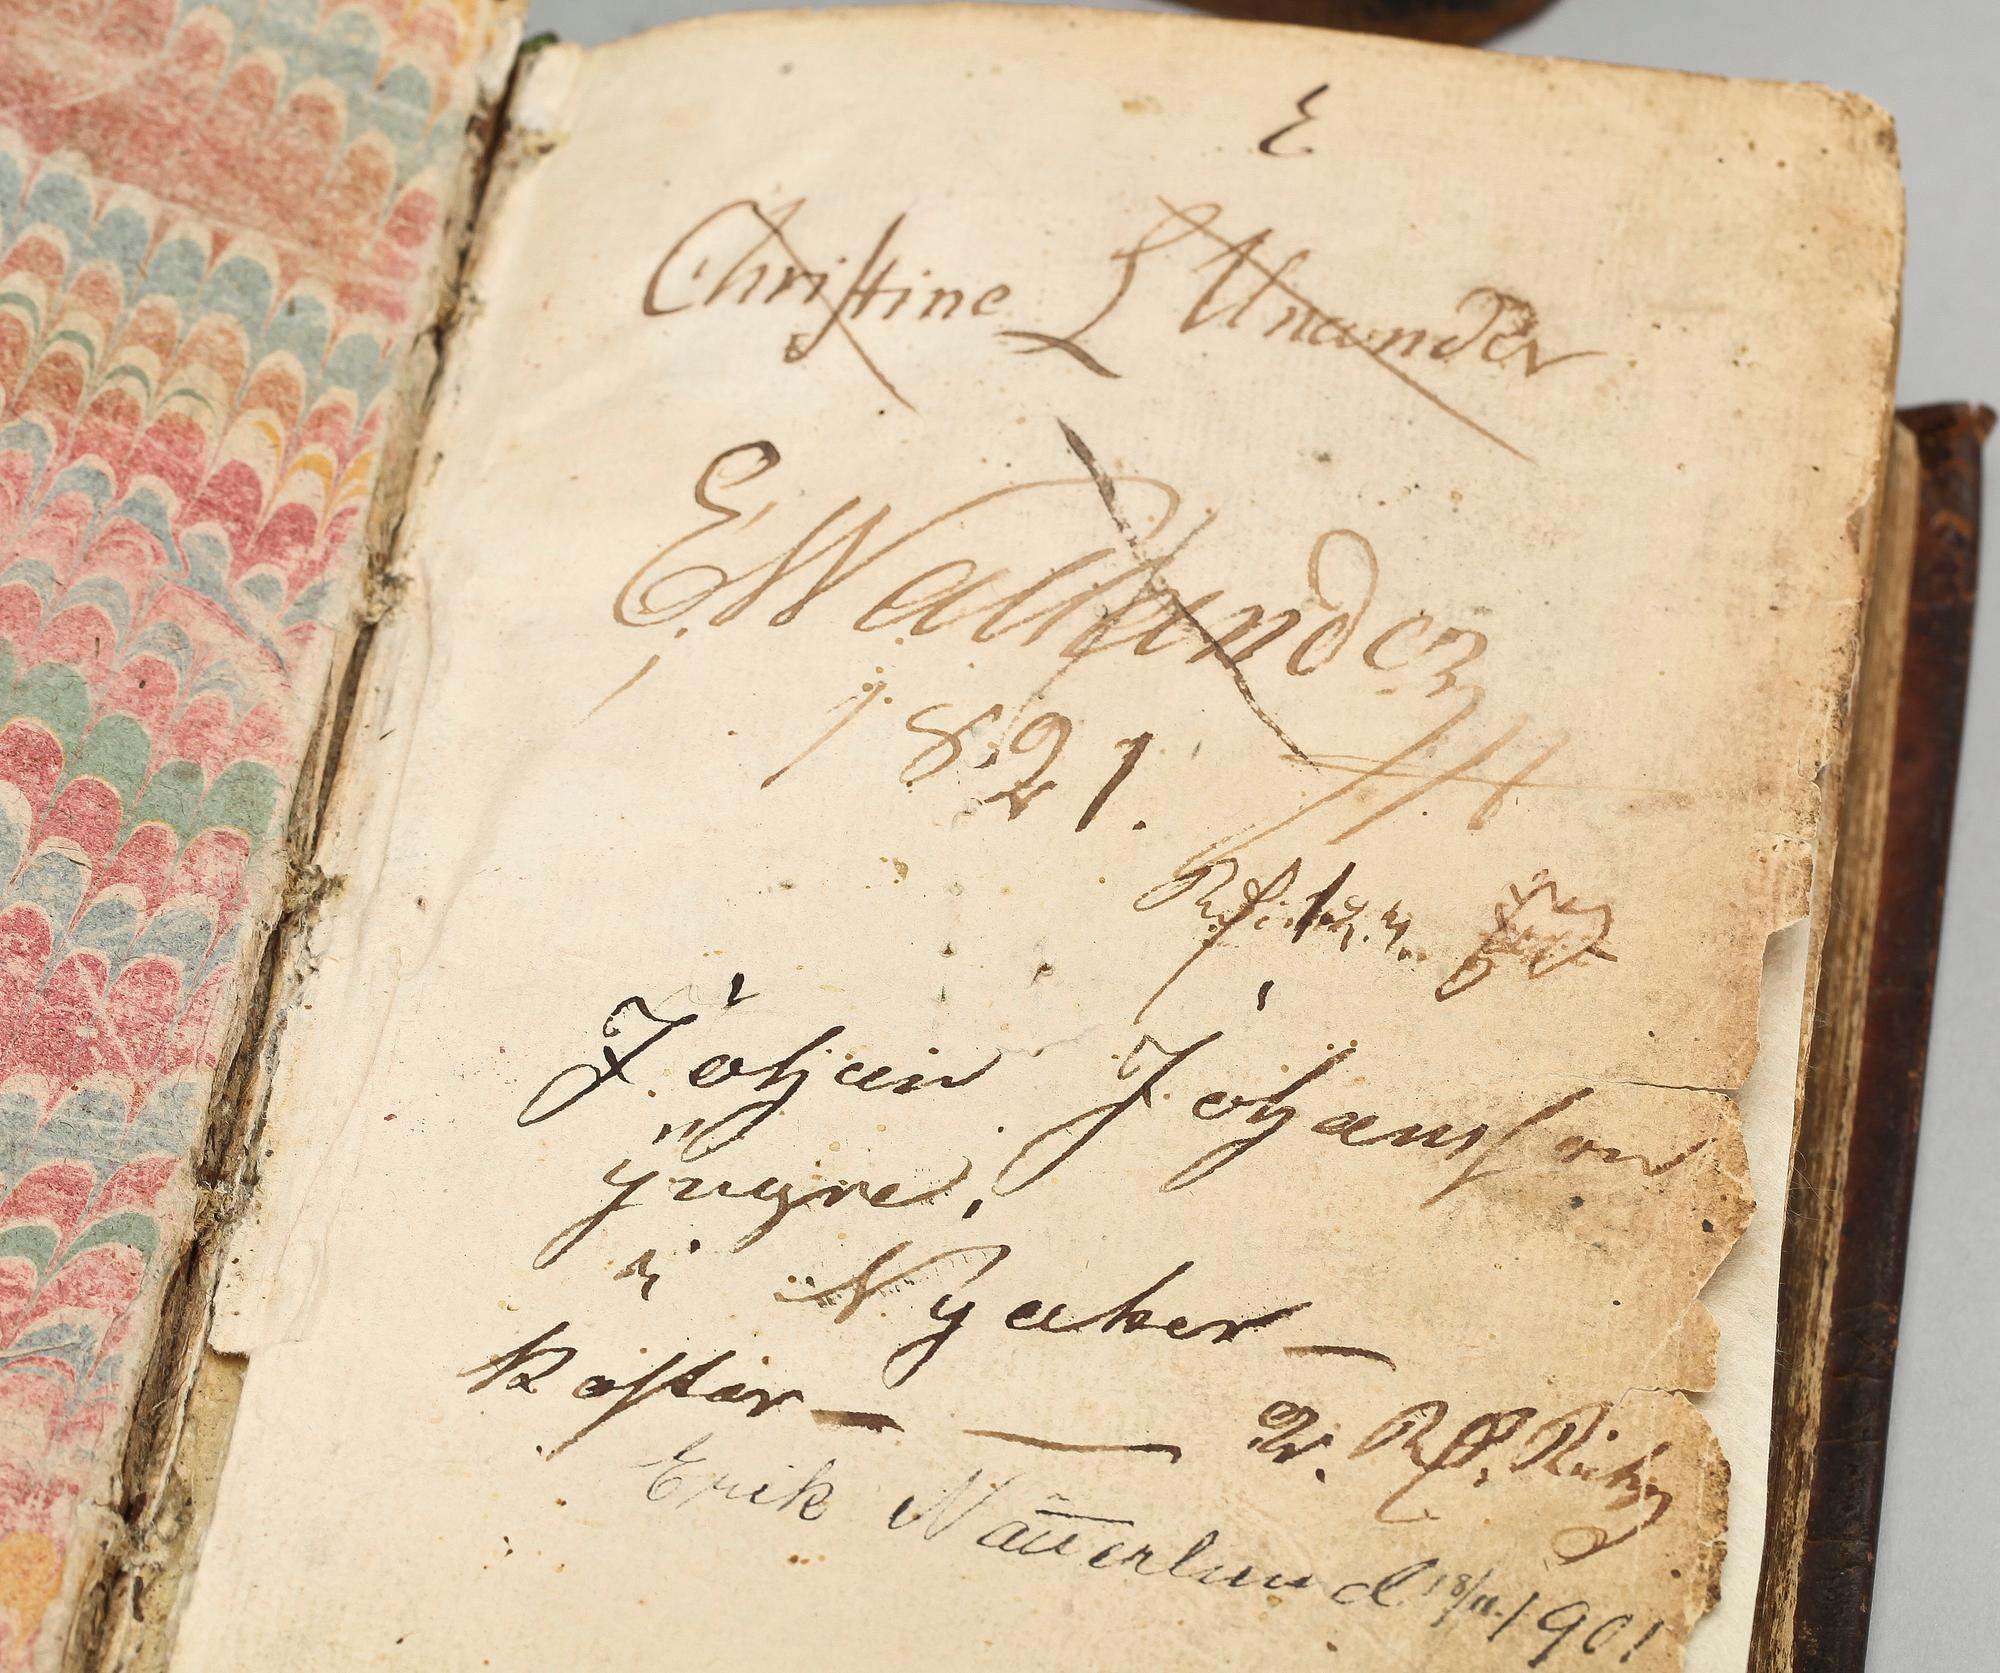 E
Christine L Unander
E. Wallander
1821.
Johan Johansson
yngre.
i Nyåker
kostar — —
Erik Nätterlund 18/11. 1901